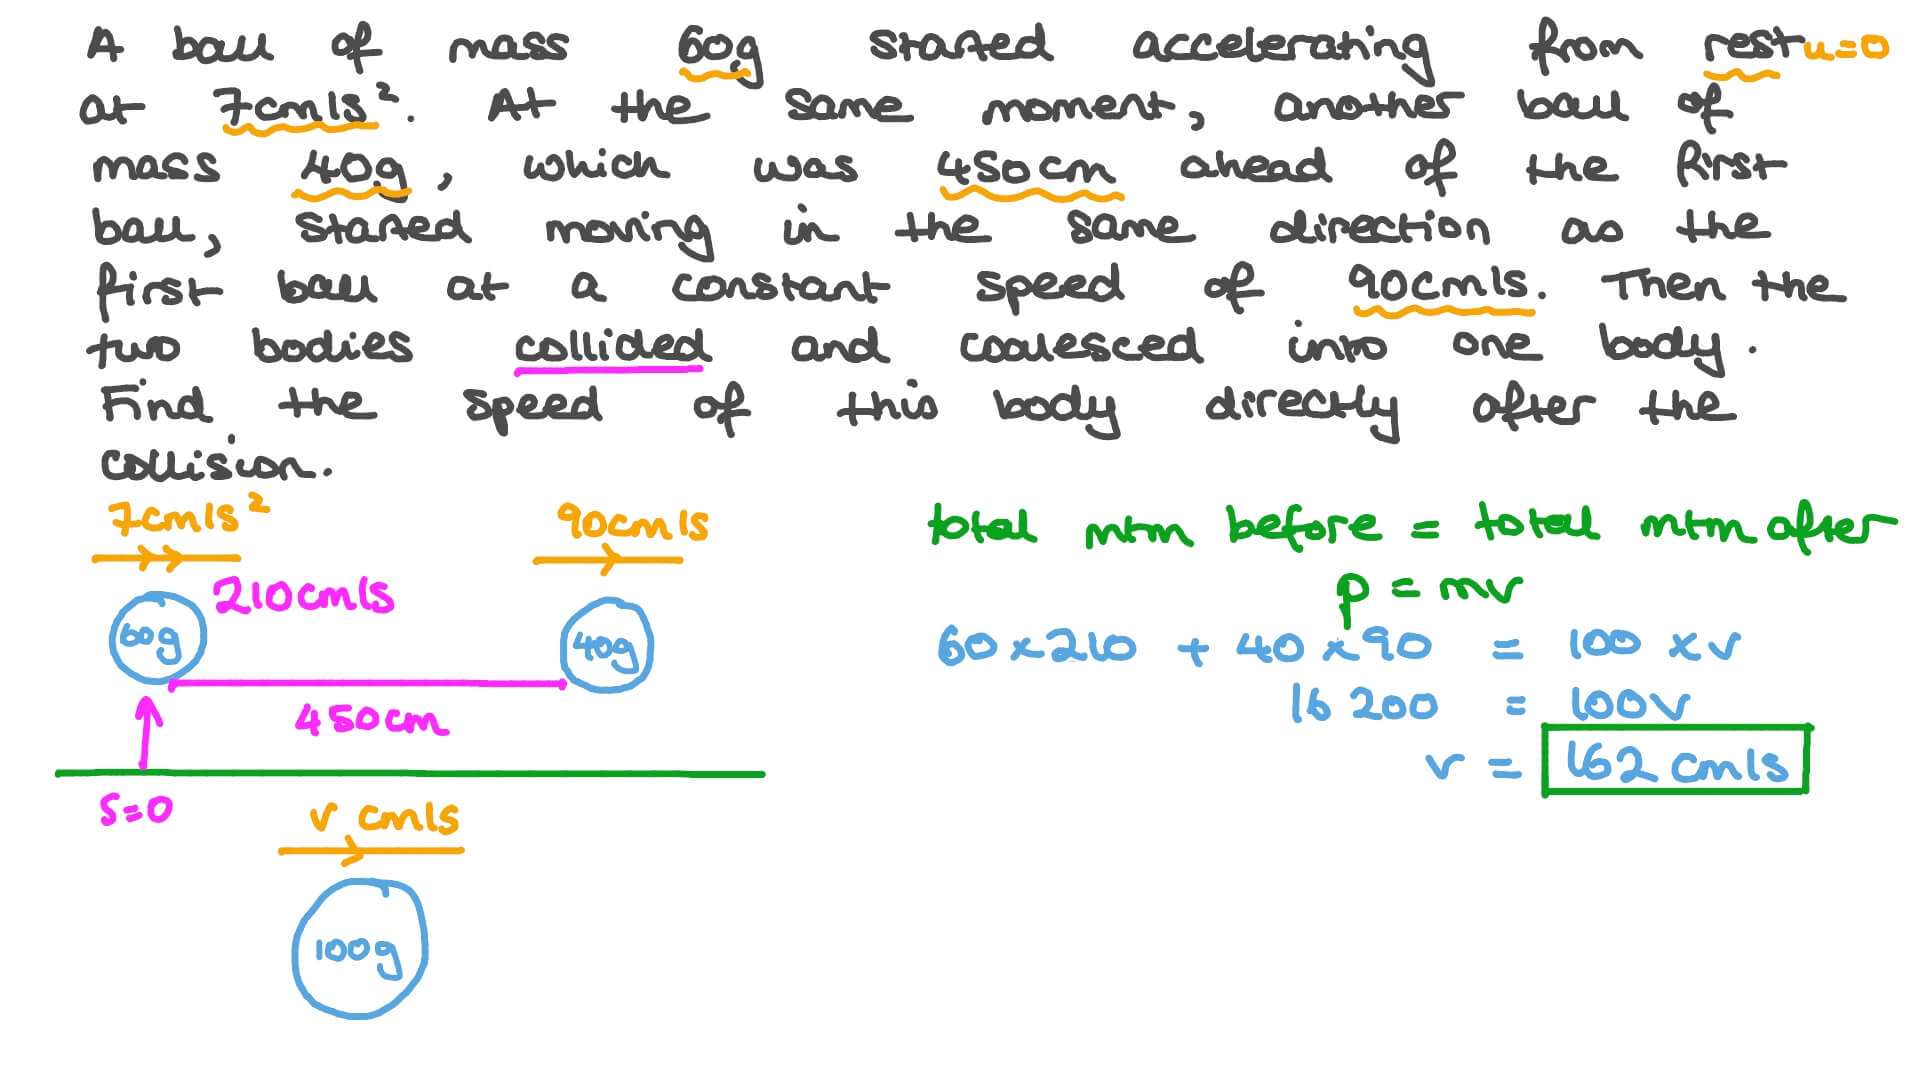 A ball of mass 60g started accelerating from rest u=0
at 7cm/s². At the same moment, another ball of
mass 40g, which was 450cm ahead of the first
ball, started moving in the same direction as the
first ball at a constant speed of 90cm/s. Then the
two bodies collided and coalesced into one body.
Find the speed of this body directly after the
collision.
7cm/s²
90cm/s
210cm/s
60g
40g
450cm
s=0
v cm/s
100g
total mtm before = total mtm after
p = mv
60 x 210 + 40 x 90 = 100 x v
16 200 = 100v
v = 162 cm/s